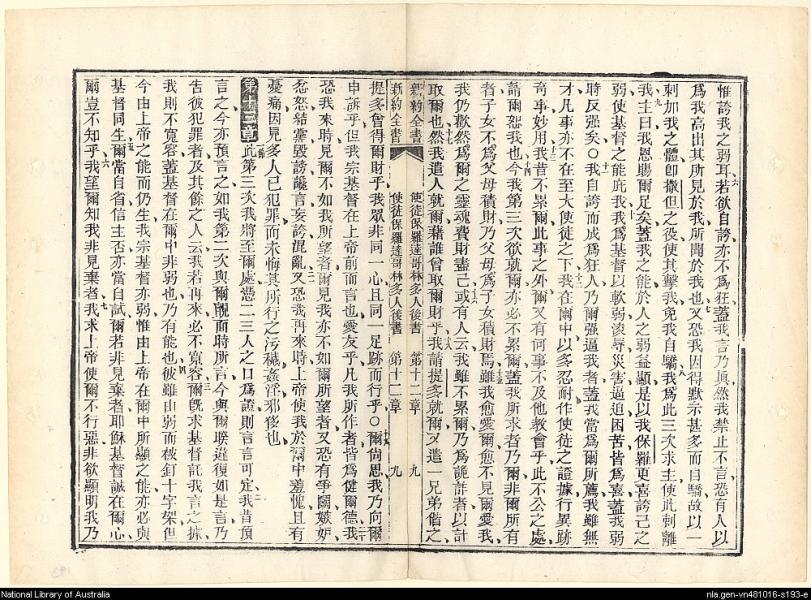 惟誇我之弱耳若欲自誇亦不為狂蓋我言乃眞然我禁止不言恐有人以
為我高出其所見於我所聞於我也又恐我因得默示甚多而自驕故以一
刺加我之體卽撒但之役使其擊我免我自驕我為此三次求主使此刺離
我主曰我恩賜爾足矣蓋我之能於人之弱益顯是以我保羅更喜誇己之
弱使基督之能庇我我為基督以軟弱淩辱災害逼迫困苦皆為喜蓋我弱
時反强矣○我自誇而成為狂人乃爾强逼我者蓋我當為爾所薦我雖無
才凡事亦不在至大使徒之下我在爾中以多忍耐作使徒之證據行異跡
奇事妙用我昔不累爾此事之外爾又有何事不及他教會乎此不公之處
請爾恕我也今我第三次欲就爾亦必不累爾蓋我所求者乃爾非爾所有
者子女不為父母積財乃父母為子女積財焉雖我愈愛爾愈不見爾愛我
我仍歡然為爾之靈魂費財盡己或有人云我雖不累爾乃為詭詐者以計
取爾也然我遣人就爾藉誰曾取爾財乎我請提多就爾又遣一兄弟偕之
新約全書 使徒保羅達哥林多人後書 第十二章 九
新約全書 使徒保羅達哥林多人後書 第十二章 九
提多曾得爾財乎我眾非同一心且同一足跡而行乎○爾尙思我乃向爾
申訴乎但我宗基督在上帝前而言也愛友乎凡我所作者皆為健爾德我
恐我來時見爾不如我所望者爾見我亦不如爾所望者又恐有爭鬬嫉妒
忿怒結黨毀謗讒言妄誇混亂又恐我再來時上帝使我於爾中羞愧且有
憂痛因見多人已犯罪而未悔其所行之污穢姦淫邪侈也
第十三章 此第三次我將至爾處憑二三人之口為證則言言可定我昔預
言之今亦預言之如我第二次與爾覿面時所言今與爾睽違復如是言乃
告彼犯罪者及其餘之人云我若再來必不寬容爾旣求基督託我言之據
我則不寬容蓋基督在爾中非弱也乃有能也彼雖由弱而被釘十字架但
今由上帝之能而仍生我宗基督亦弱惟由上帝在爾中所顯之能亦必與
基督同生爾當自省信主否亦當自試爾若非見棄者耶穌基督誠在爾心
爾豈不知乎我望爾知我非見棄者我求上帝使爾不行惡非欲顯明我乃
National Library of Australia
nla.gen-vn481016-s193-e